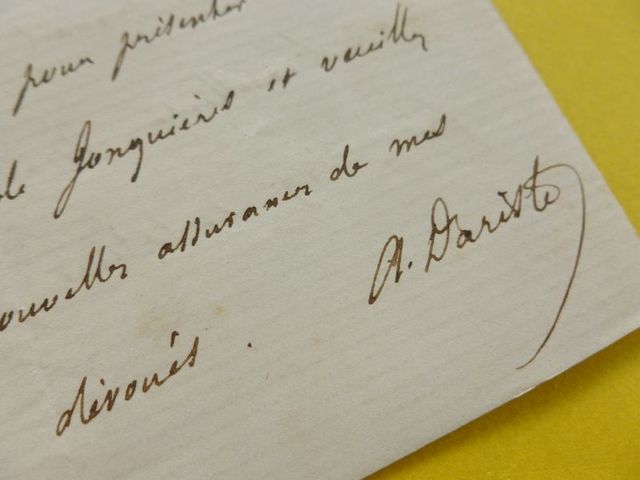 pour présenter
de Jonquières et veuillez
nouvelles assurances de mes
dévoués.
A. Dariste